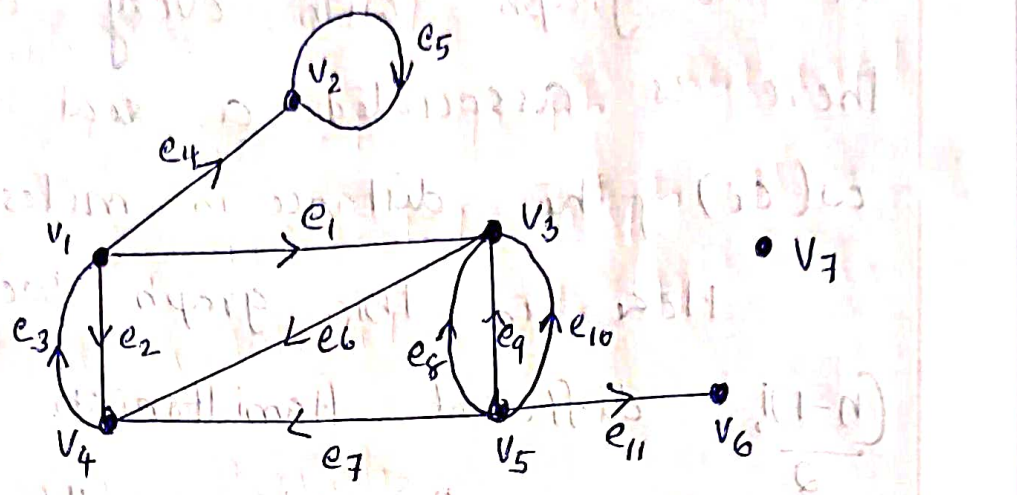 e5
v2
e4
v1
e1
v3
v7
e3
e2
e6
e8
e9
e10
v4
e7
v5
e11
v6